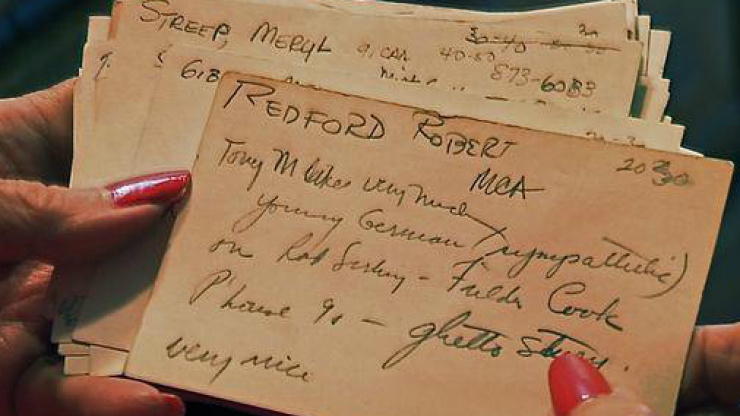 STREEP, MERYL 9, CAA 40-50
873-6083
618
REDFORD ROBERT 20-30
MCA
Tony M likes very much
young German (sympathetic)
on Rod Serling - Fielder Cook
P'house 90 - ghetto story.
very nice